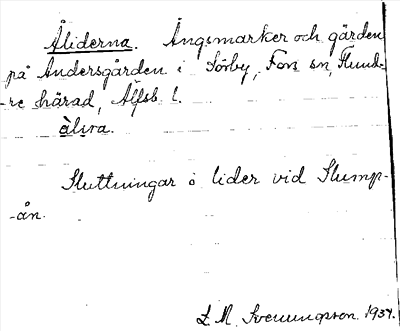 Åliderna. Ängsmarker och gärden
på Andersgården i Sörby, Fors sn, Flund-
-re härad, Älfsb l.
àlira.
Sluttningar o lider vid Slump-
-ån.
L. M. Svenungsson 1934.